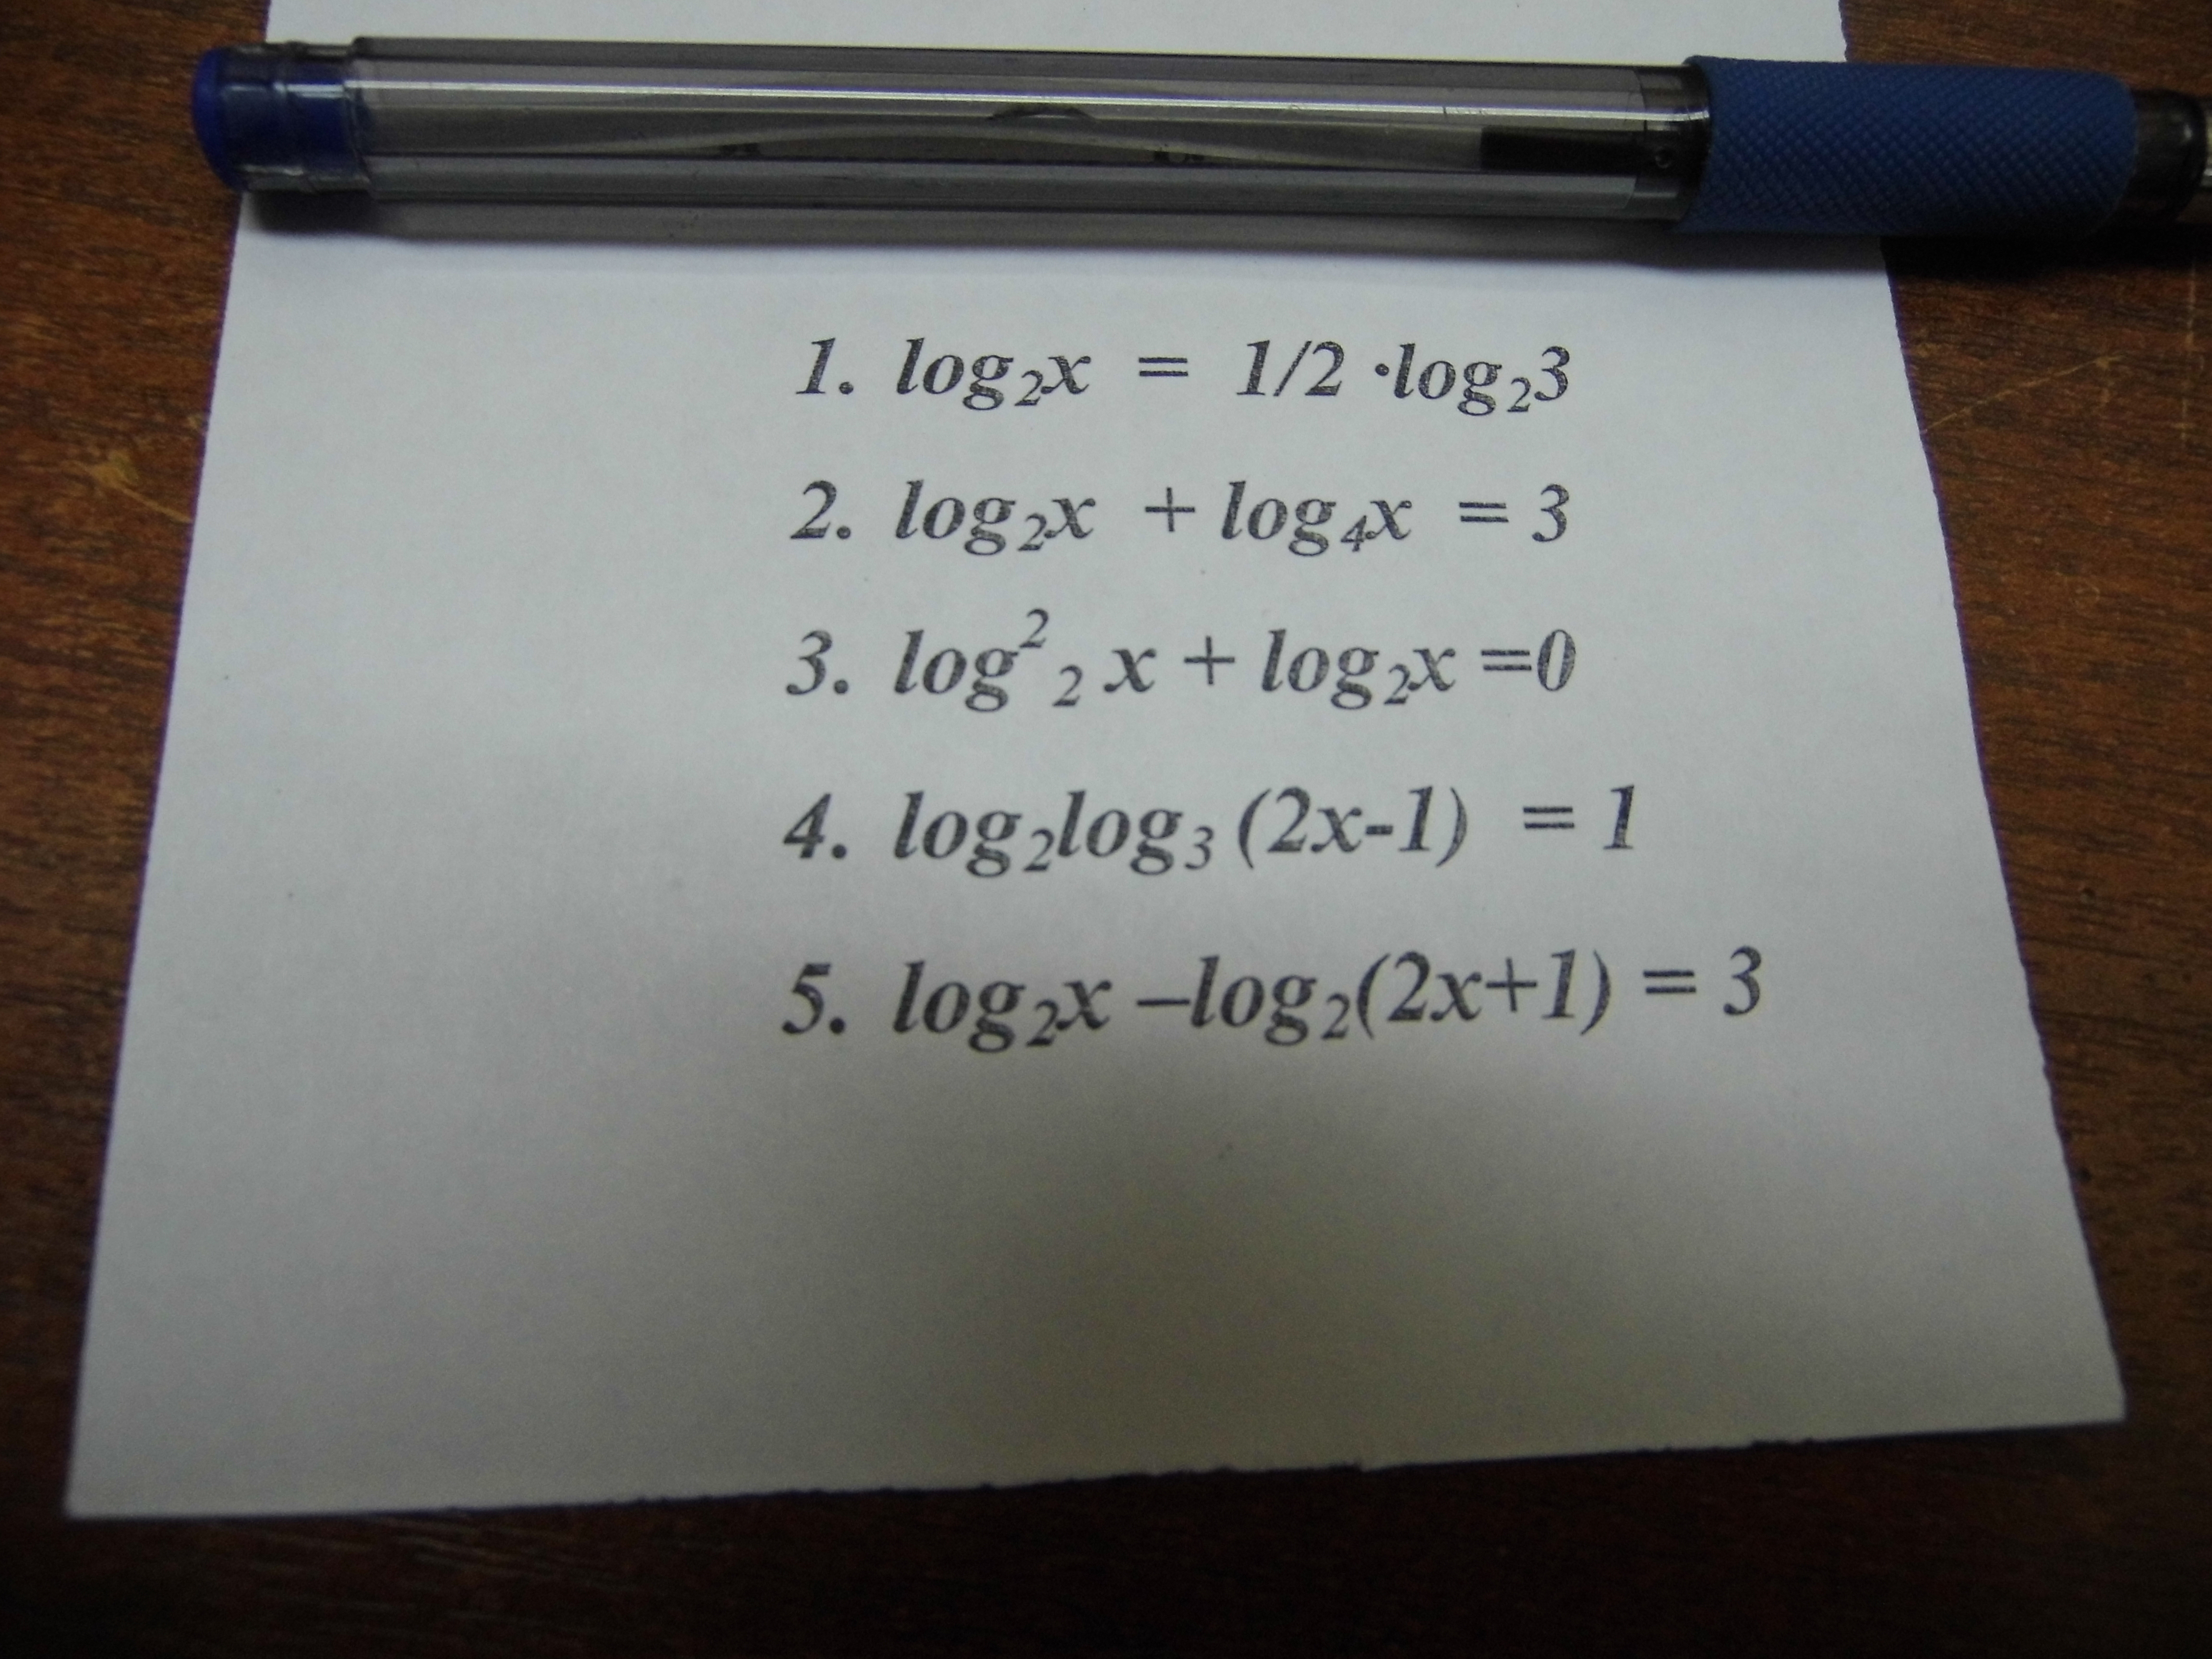 1. log₂x = 1/2 ·log₂3
2. log₂x + log₄x = 3
3. log²₂ x + log₂x =0
4. log₂log₃ (2x-1) = 1
5. log₂x –log₂(2x+1) = 3